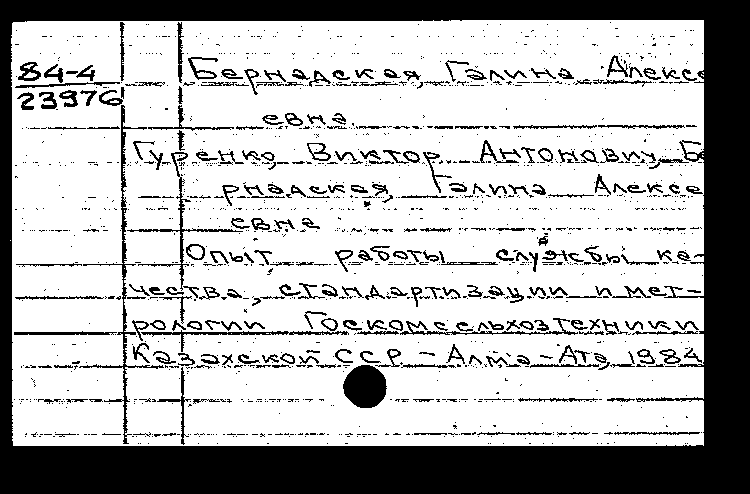 84-4
23976
Бернадская, Галина Алексе
евна.
Гуренко, Виктор Антонович, Бе
рнадская, Галина Алексе
евна
Опыт работы службы ка-
чества, стандартизации и мет-
рологии Госкомсельхозтехники
Казахской ССР. - Алма-Ата, 1984